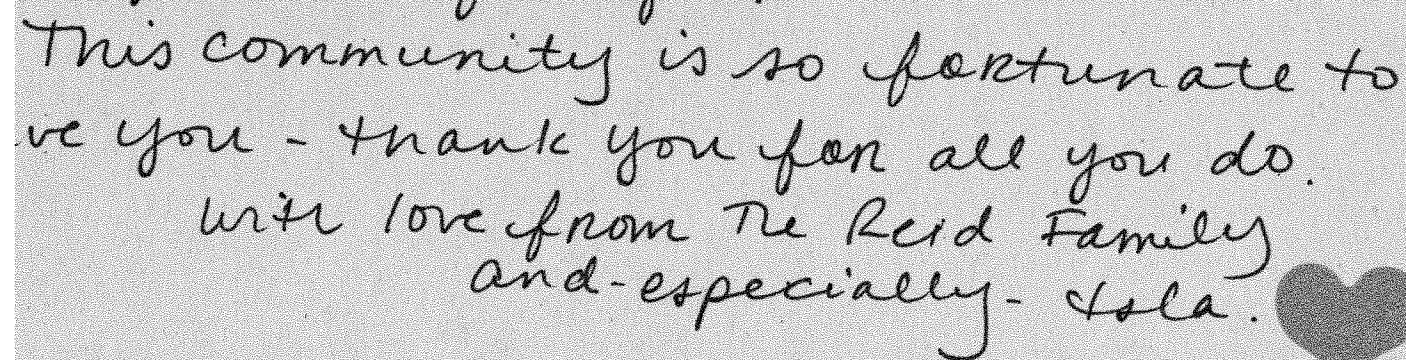 This community is so fortunate to
ve you - thank you for all you do.
With love from The Reid Family
and - especially - Isla.